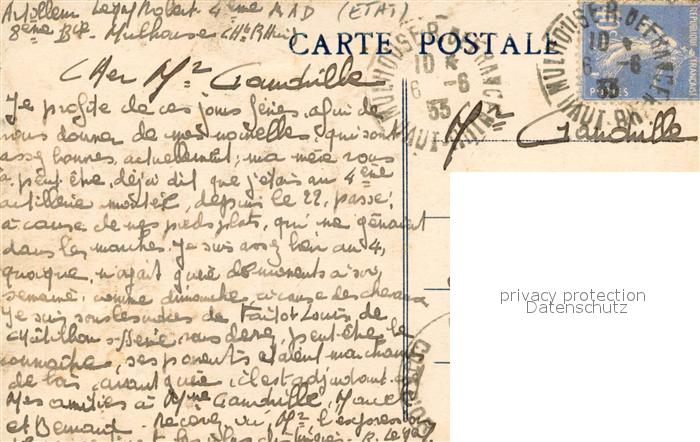 Artilleur Legay Robert 4ème RAD (ETAT)
8ème Bie - Mulhouse (Ht Rhin)
CARTE POSTALE
MULHOUSE R. DE FRANCE
10
6 -6
33
HAUT-RHIN
MULHOUSE R. DE FRANCE
10
6 -6
33
HAUT-RHIN
POSTES
Cher Mr Gandville
Mr Gandville
Je profite de ces jours fériés, afin de
vous donner de mes nouvelles, qui sont
assez bonnes, actuellement; ma mère vous
a peut-être, déjà dit que j'étais au 4ème
artillerie depuis le 22, passé,
à cause de mes pieds plats, qui me gênaient
dans les marches. Je suis assez bien au 4,
quoique, n'ayant guère de moments à soi,
semaine, comme dimanche, à cause des chevaux
Je suis sous les ordres de Louis, de
Châtillon s- vous devez, peut-être le
connaître, ses parents étaient marchand
de bas, avant guerre, il est adjudant.
Mes amitiés à Mme Gandville,
et Bernard. Recevez, Mr l'expression
R. Legay
privacy protection
Datenschutz